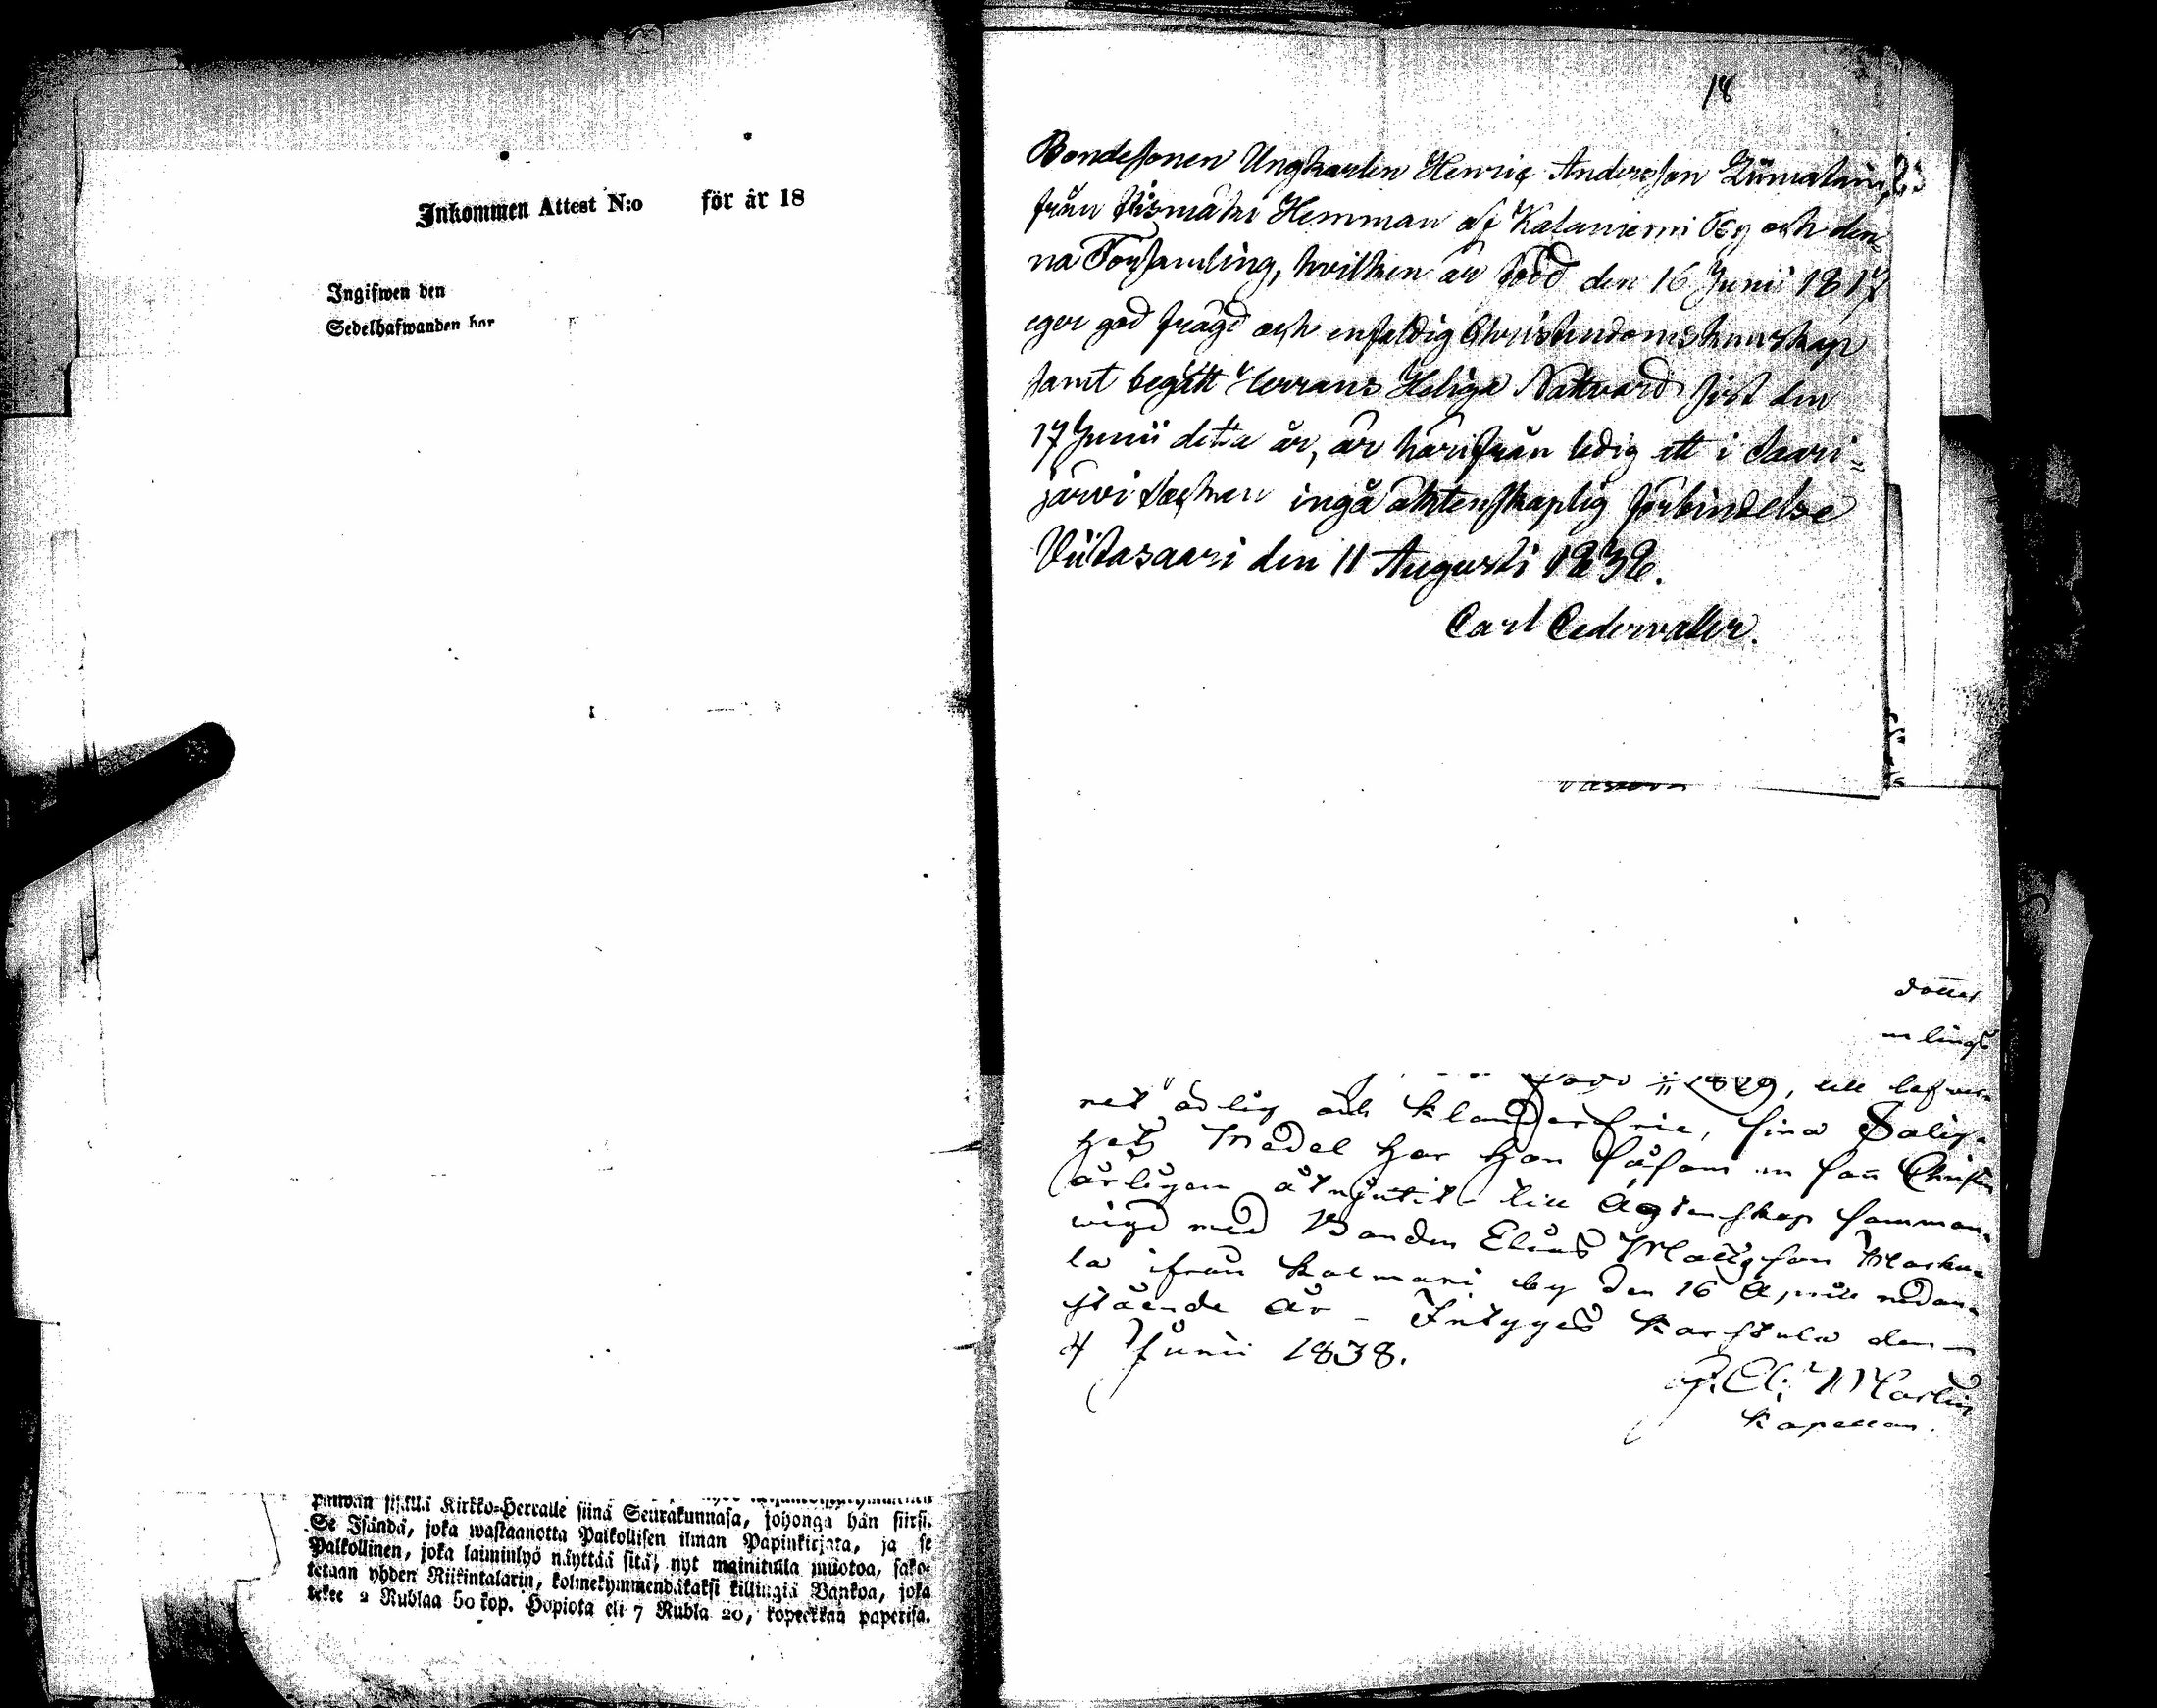 Inkommen Attest N:o för år 18
Ingifwen den
Sedelhafwanden har
Kirkko-Herralle siinä Seurakunnasa, johonga hän siirsi.
Se Isändä, joka wastaanotta Palkollisen ilman Papinkirjata, ja se
Palkollinen, joka laiminlyö näyttää sitä, nyt mainitulla muotoa, sako-
tetaan yhden Riikintalarin, kolmekymmendäkaksi killingiä Bankoa, joka
tekee 2 Rublaa 50 kop. Hopiota eli 7 Rubla 20, kopeekkaa paperisa.
18
Bondesonen Ungkarlen Henric Andersson
från Hemman af Kalaniemi By och den-
na Församling, hvilken är född den 16 Junii 1817
eger god frägd och enfaldig Christendomskunskap
samt begått Herrans Heliga Nattvard sist den
17 Junii detta år, är härifrån ledig att i Saari=
järvi Socken ingå äktenskaplig förbindelse
Viitasaari den 11 Augusti 1838.
Carl Cedervaller.
dotter
mlings
1819, till lefwer-
net ärlig och klanderfrie, sina Salig-
hets Medel har hon såsom en sañ Christen
årligen åtnjutit - till Ägtenskap samman-
wigd med Bonden Elias Matsson Marku-
la ifrån Kalmari by den 16 April nedan-
stående år - Intygas Karstula den
4 Junii 1838.
Martin
Kapellan.